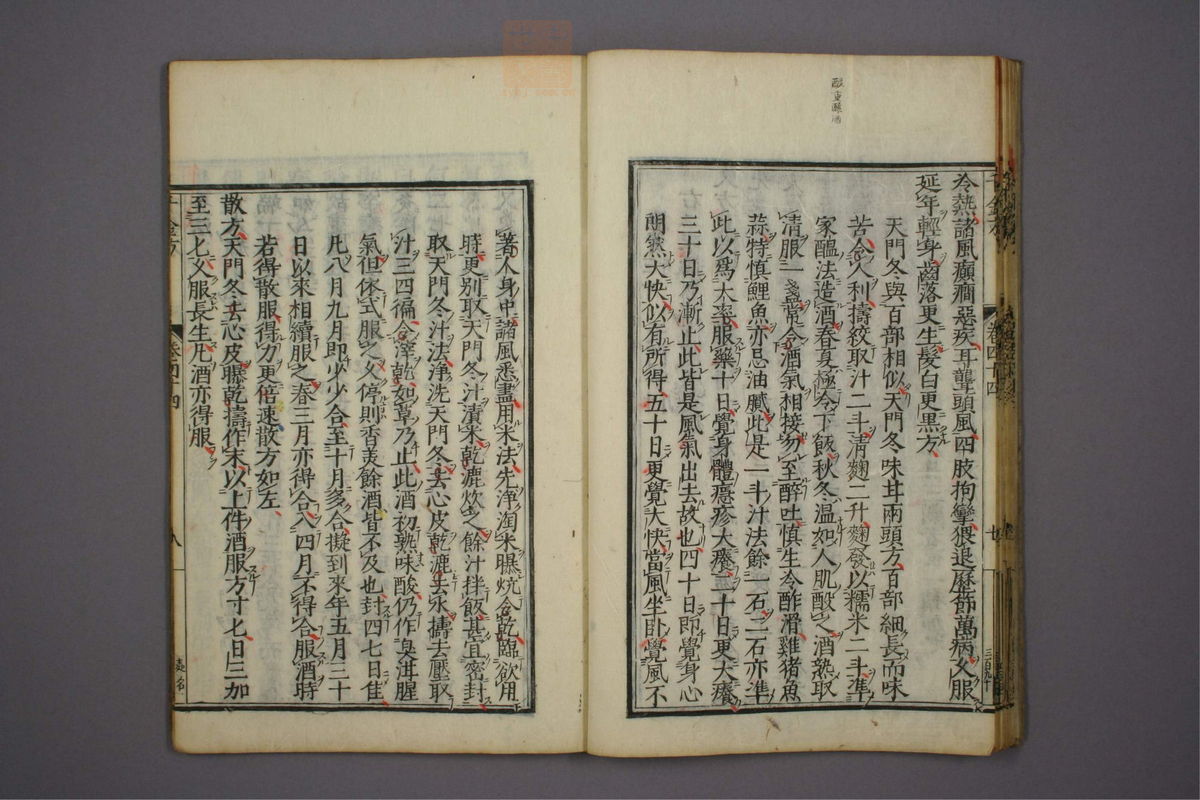 冷熱諸風癲癇惡疾耳聾頭風四肢拘攣猥退歷節萬病久服
延年輕身齒落更生髮白更黑方
天門冬與百部相似天門冬味甘兩頭方百部細長而味
苦令人利擣絞取汁二斗漬麴二升麴發以糯米二斗準
家醞法造酒春夏極冷下飯秋冬溫如人肌酘之酒熟取
清服一盞常令酒氣相接勿至醉吐慎生冷酢滑雞猪魚
蒜特慎鯉魚亦忌油膩此是一斗汁法餘一石二石亦準
此以爲大率服藥十日覺身體癮疹大癢二十日更大癢
三十日乃漸止此皆是風氣出去故也四十日即覺身心
朗然大快似有所得五十日更覺大快當風坐卧覺風不
著人身中諸風悉盡用米法先淨淘米曝炕令乾臨欲用
時更別取天門冬汁漬米乾漉炊之餘汁拌飯甚宜密封
取天門冬汁法淨洗天門冬去心皮乾漉去水擣去壓取
汁三四徧令滓乾如草乃止此酒初熟味酸仍作臭泔腥
氣但依式服之久停則香美餘酒皆不及也封四七日佳
凡八月九月即少少合至十月多合擬到來年五月三十
日以來相續服之春三月亦得合入四月不得合服酒時
若得散服得力更倍速散方如左
散方天門冬去心皮曝乾擣作末以上件酒服方寸匕日三加
至三匕久服長生凡酒亦得服
千金方
卷四十四
八